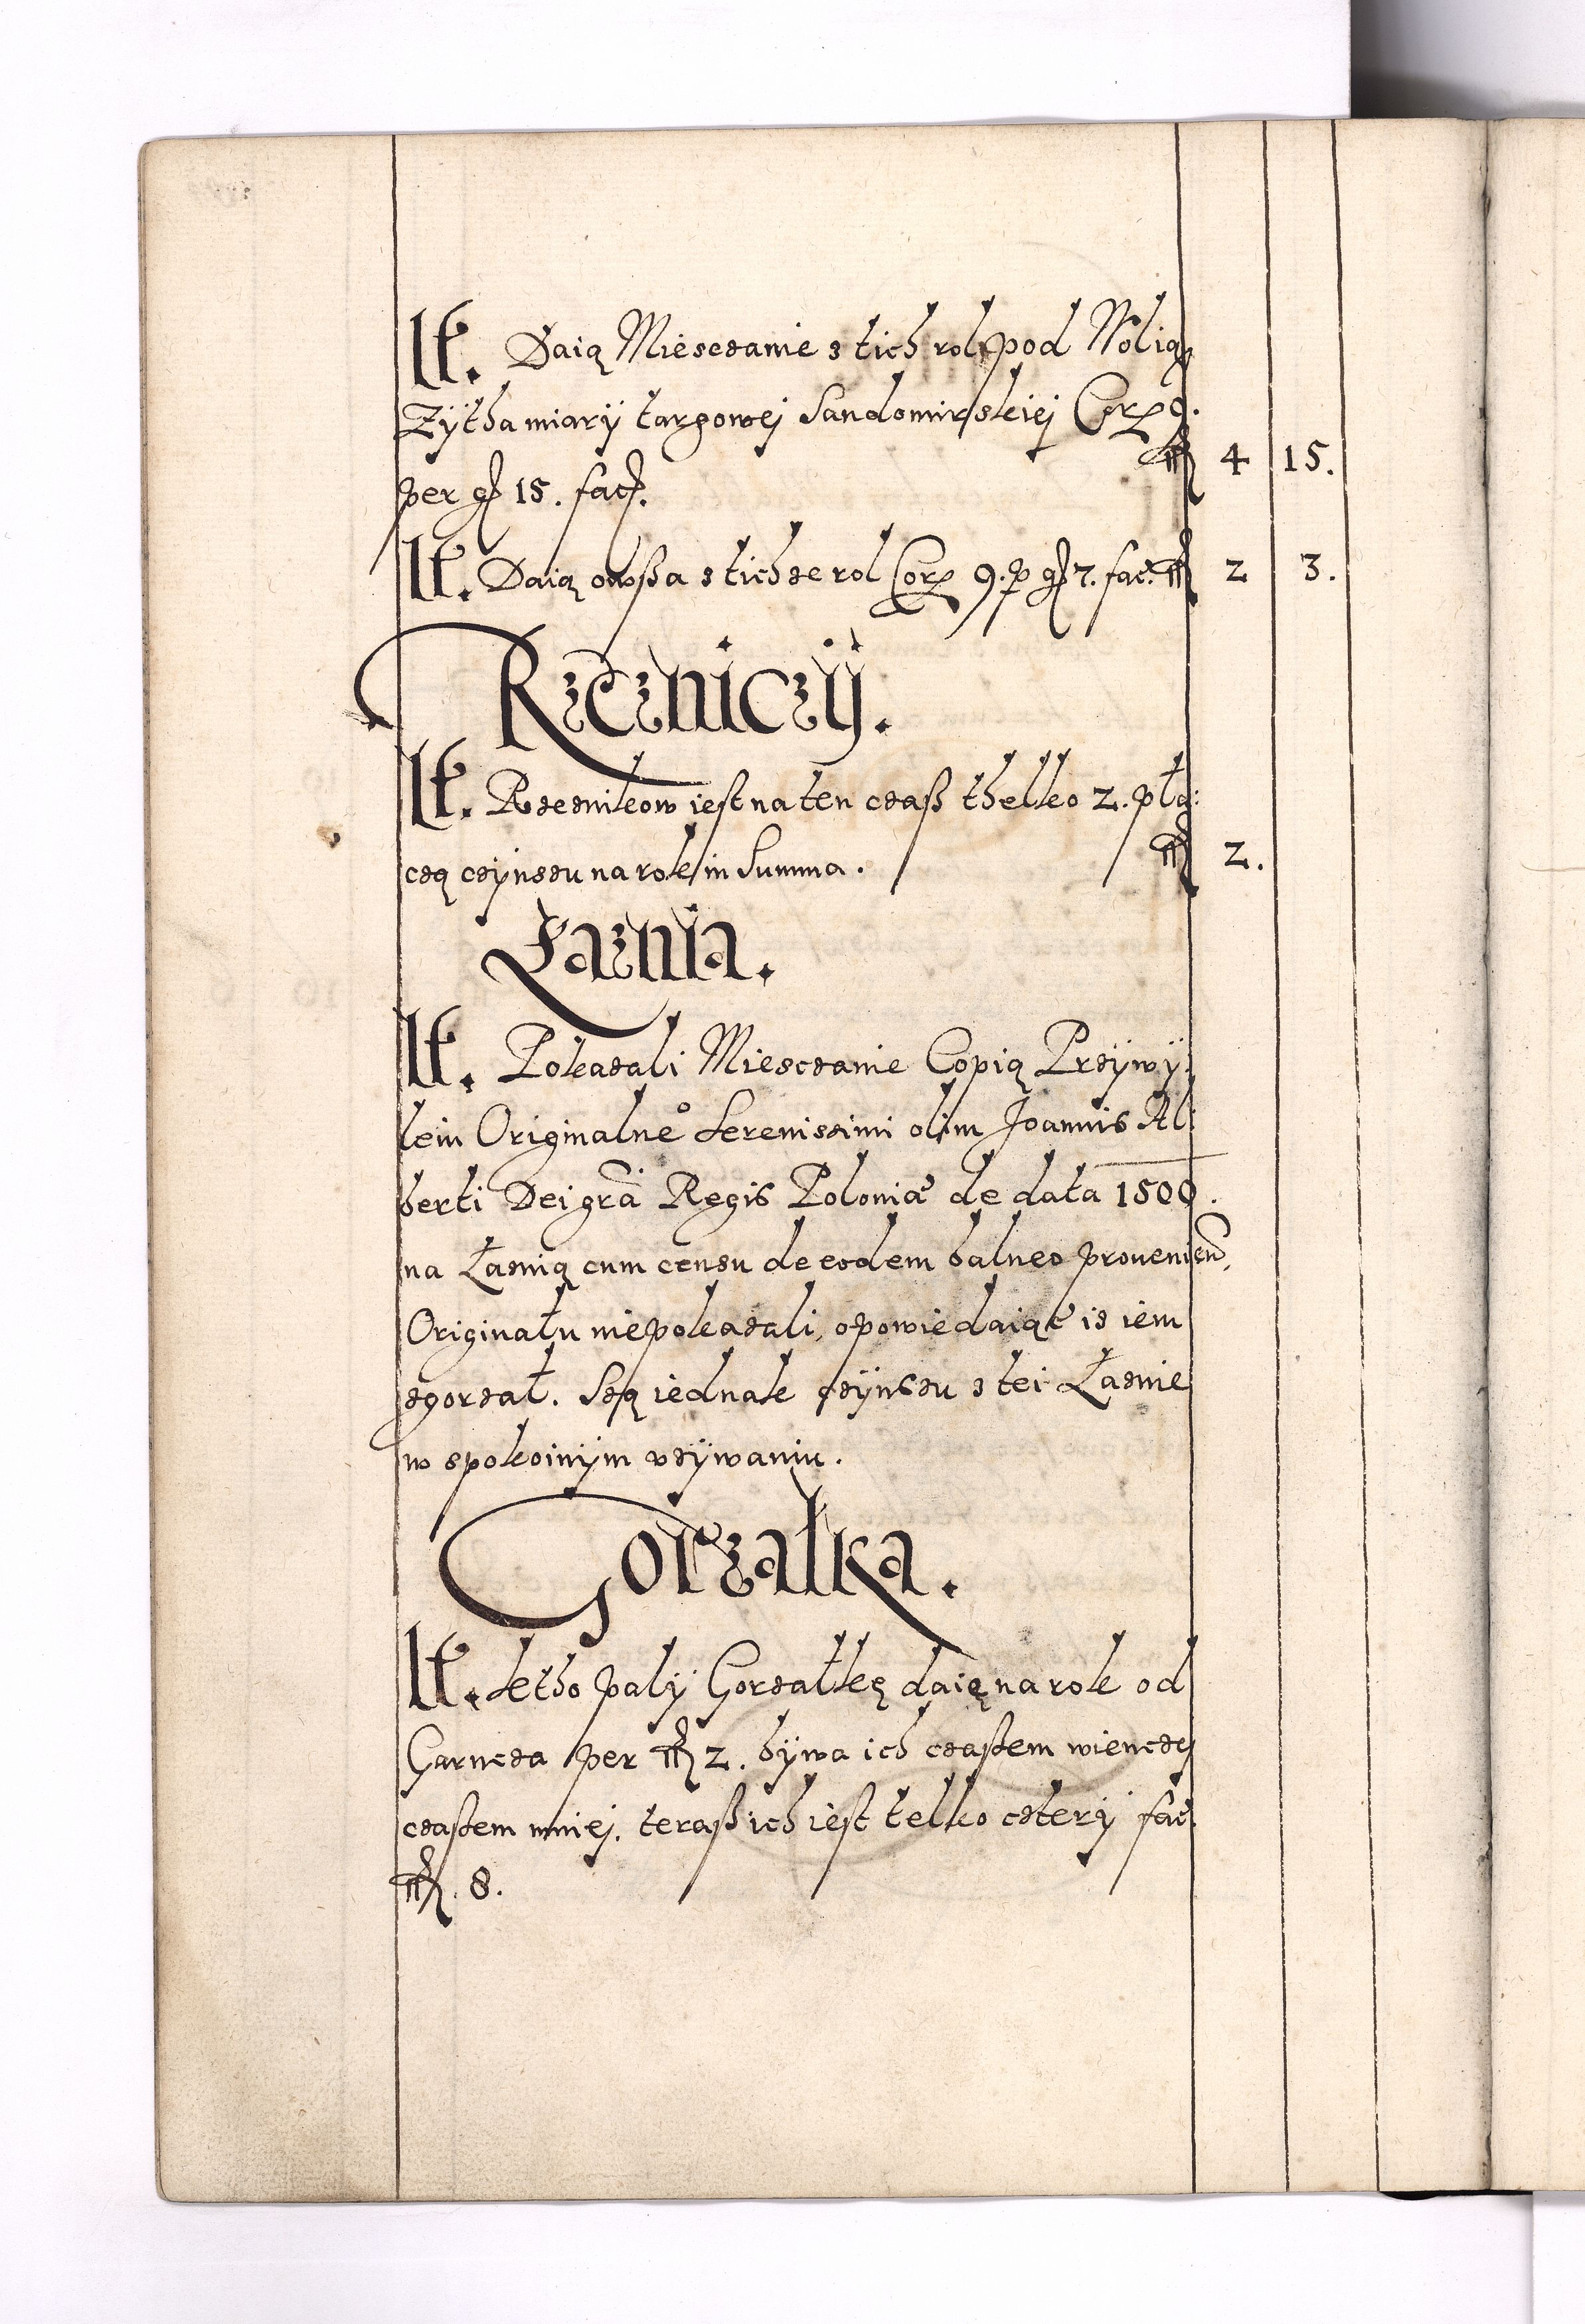 It. Daią Miesczanie z tich rol pod Wolią
Zÿtha miarÿ targowej Sandomirskiej Corz 9.
per gr 15. fac. fl 4 15.
It. Daią owßa z tichze rol Corz 9. p gr 7. fac. fl 2 3.
Rzeznicÿ.
It. Rzeznikow iest na ten czaß thelko 2. płą:
czą czÿnszu na rok in Summa. fl 2.
Łaznia.
It. Pokazali Miesczanie Copią Przÿwÿ:
leiu Originalne° Serenissimi olim Joannis Al:
berti Dei grã Regis Poloniæ de data 1500.
na Łaznią cum censu de eodem balneo prouenien,
Originału niepokazali, opowiedaiąc iz iem
zgorzał. Seą iednak czÿnszu z tei Łaznie
w spokoinÿm vzÿwaniu.
Gorzalka.
It. Ktho palÿ Gorzałkę daię na rok od
Garncza per fl 2. bÿwa ich czaßem wienczeÿ
czaßem mniej. teraß ich iest telko czterÿ fac.
fl. 8.